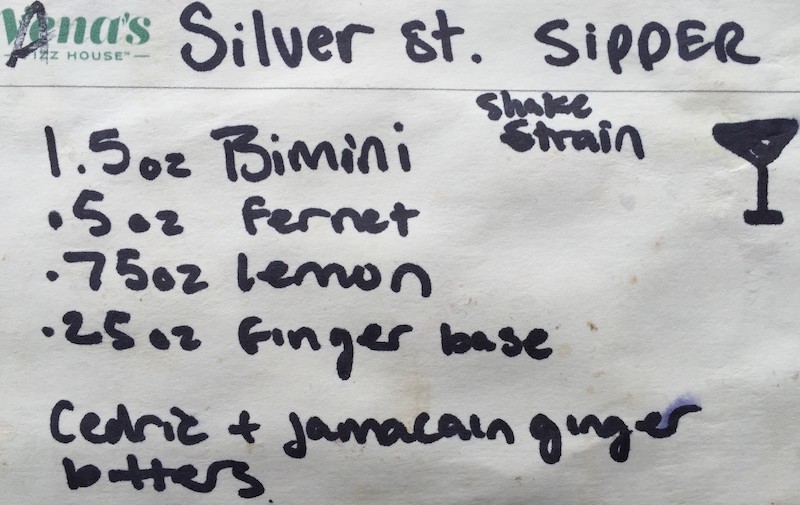 Vena's
FIZZ HOUSE™
Silver St. SIPPER
Shake
Strain
1.5oz Bimini
.5oz Fernet
.75oz Lemon
.25oz Finger base
Cedric + Jamacain ginger
bitters